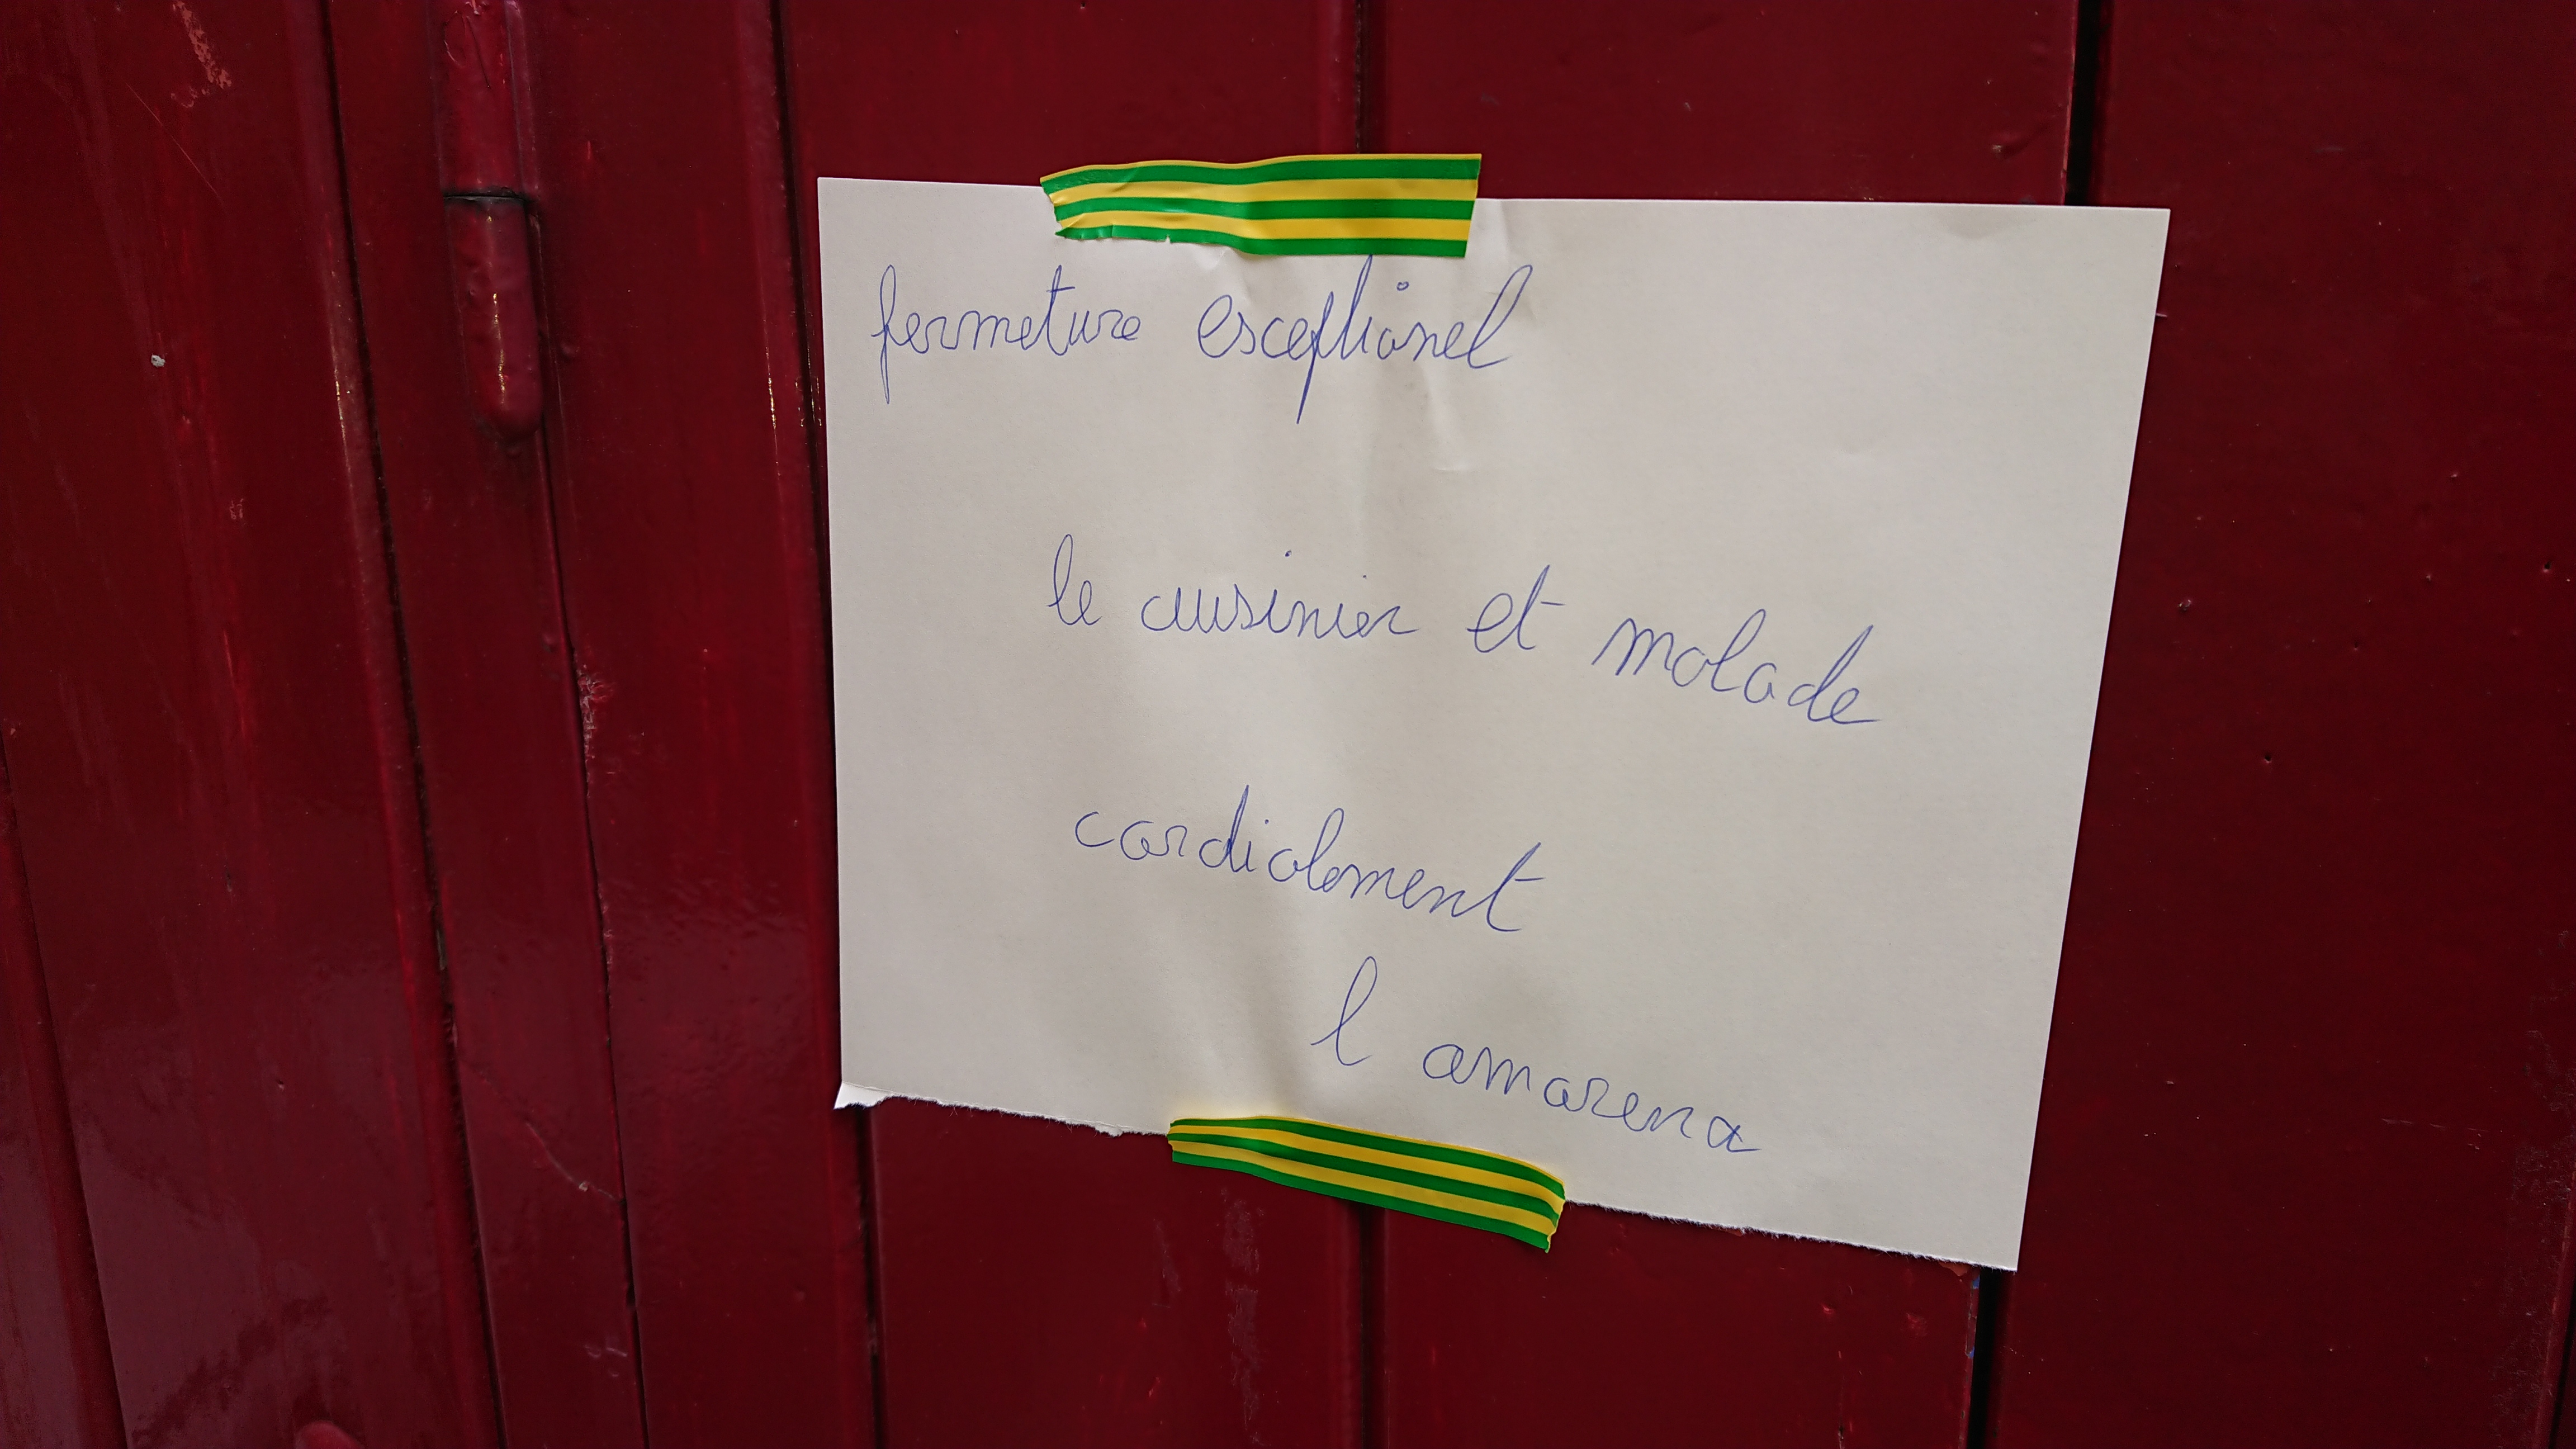 fermeture esceptionel
le cuisinier et malade
cordialement
l amarena